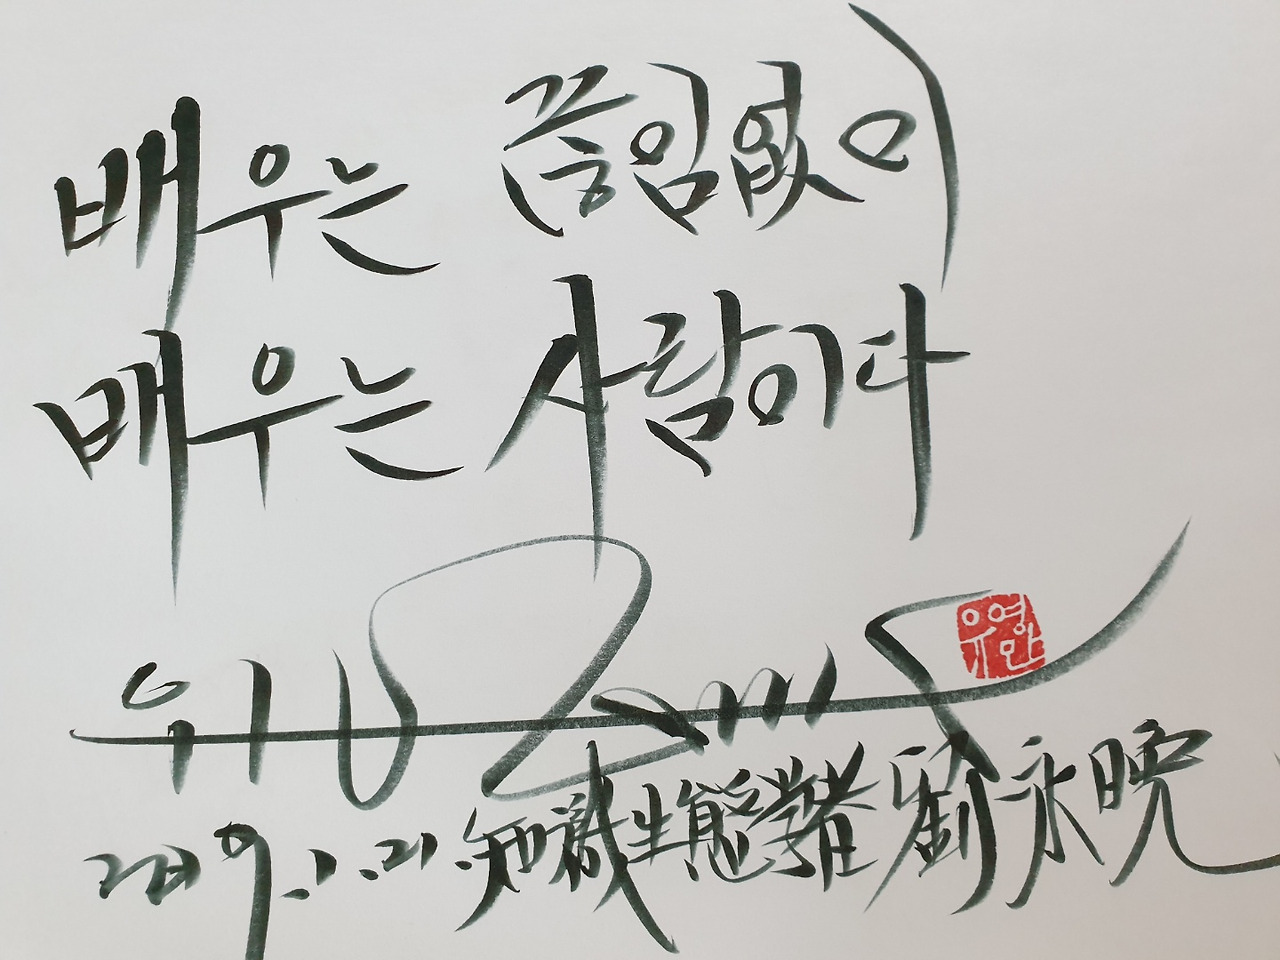 배우는 끊임없이
배우는 사람이다
유영만
2019.1.21. 知識生態學者 劉永晩